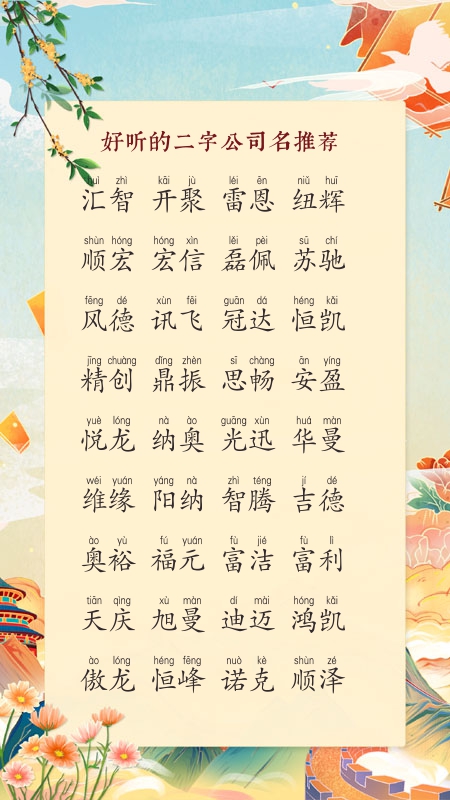 好听的二字公司名推荐
huì zhì kāi jù léi ēn niǔ huī
汇智 开聚 雷恩 纽辉
shùn hóng hóng xìn lěi pèi sū chí
顺宏 宏信 磊佩 苏驰
fēng dé xùn fēi guān dá héng kǎi
风德 讯飞 冠达 恒凯
jīng chuàng dǐng zhèn sī chàng ān yíng
精创 鼎振 思畅 安盈
yuè lóng nà ào guāng xùn huá màn
悦龙 纳奥 光迅 华曼
wéi yuán yáng nà zhì téng jí dé
维缘 阳纳 智腾 吉德
ào yù fú yuán fù jié fù lì
奥裕 福元 富洁 富利
tiān qìng xù màn dí mài hóng kǎi
天庆 旭曼 迪迈 鸿凯
ào lóng héng fēng nuò kè shùn zé
傲龙 恒峰 诺克 顺泽